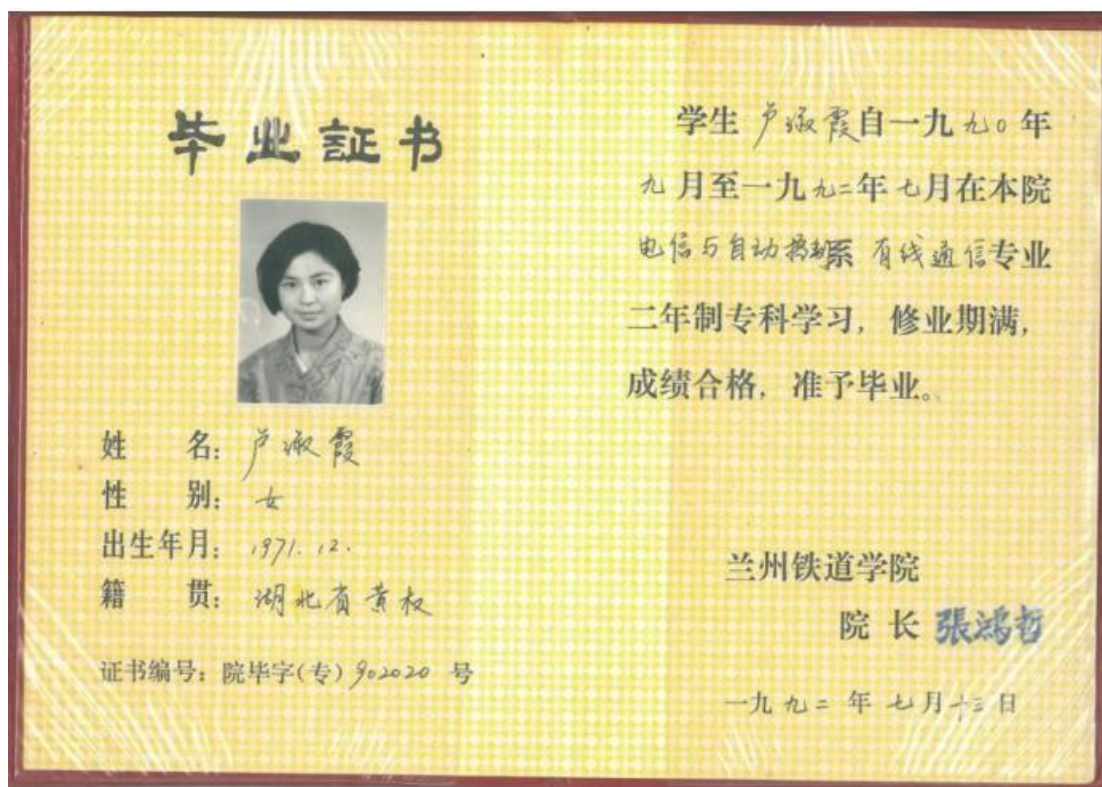 毕业証书
姓 名：卢淑霞
性 别：女
出生年月：1971.12.
籍 贯：湖北省黄坡
证书编号：院毕字(专)902020 号
学生 卢淑霞自一九九〇年
九月至一九九二年七月在本院
电信与自动控制系 有线通信专业
二年制专科学习，修业期满，
成绩合格，准予毕业。
兰州铁道学院
院 长 張鴻哲
一九九二年七月十三日